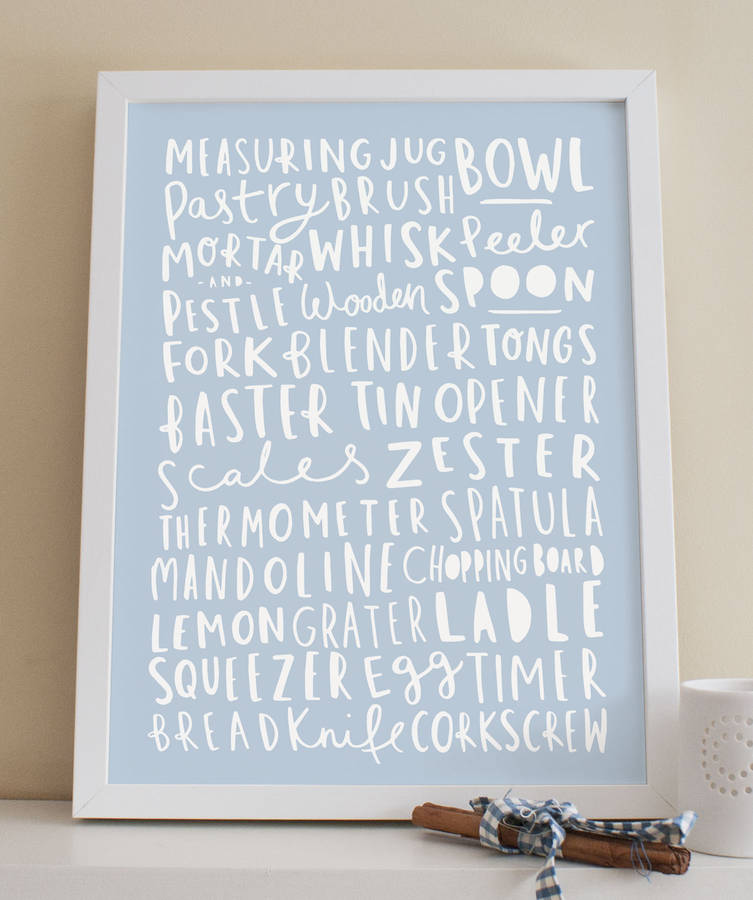 MEASURING JUG BOWL
Pastry BRUSH
MORTAR WHISK Peeler
-AND-
PESTLE Wooden SPOON
FORK BLENDER TONGS
BASTER TIN OPENER
Scales ZESTER
THERMOMETER SPATULA
MANDOLINE CHOPPING BOARD
LEMON GRATER LADLE
SQUEEZER Egg TIMER
BREAD Knife CORKSCREW